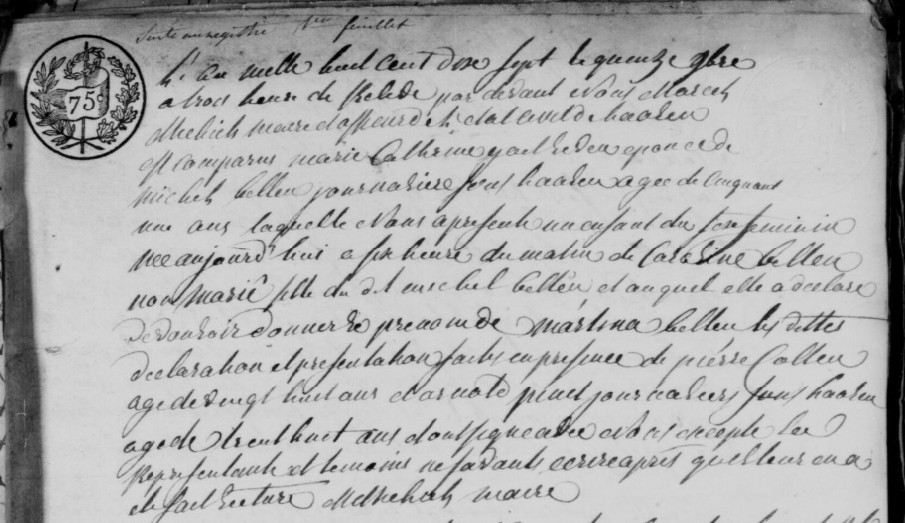 Suite au registre 1er feuillet
75c
L'an mille huit cent dix sept le quenze 9bre
a trois heure de par devant Nous
maire d'offeurd de l'etat civil de haaren
est comparus marie Catherine epouce de
michel bellen journaliere Jons haaren agee de Cinquant
une ans laquelle Nous a presente un enfant du sexe feminin
Nee aujourd'hui a six heure du matin de bellen
non marié fille du dit michel bellen et auquel elle a declare
de vouloir donner le prenom de Martina bellen les dittes
declaration et presentation faites en presence de piérre Collen
age de vingt huit ans et arnold journaliers Jons haaren
age de trent huit ans dont signe avec Nous excepté les
Representante et temoins ne savants ecrire apres qu'il leur en a
et fait lecture maire